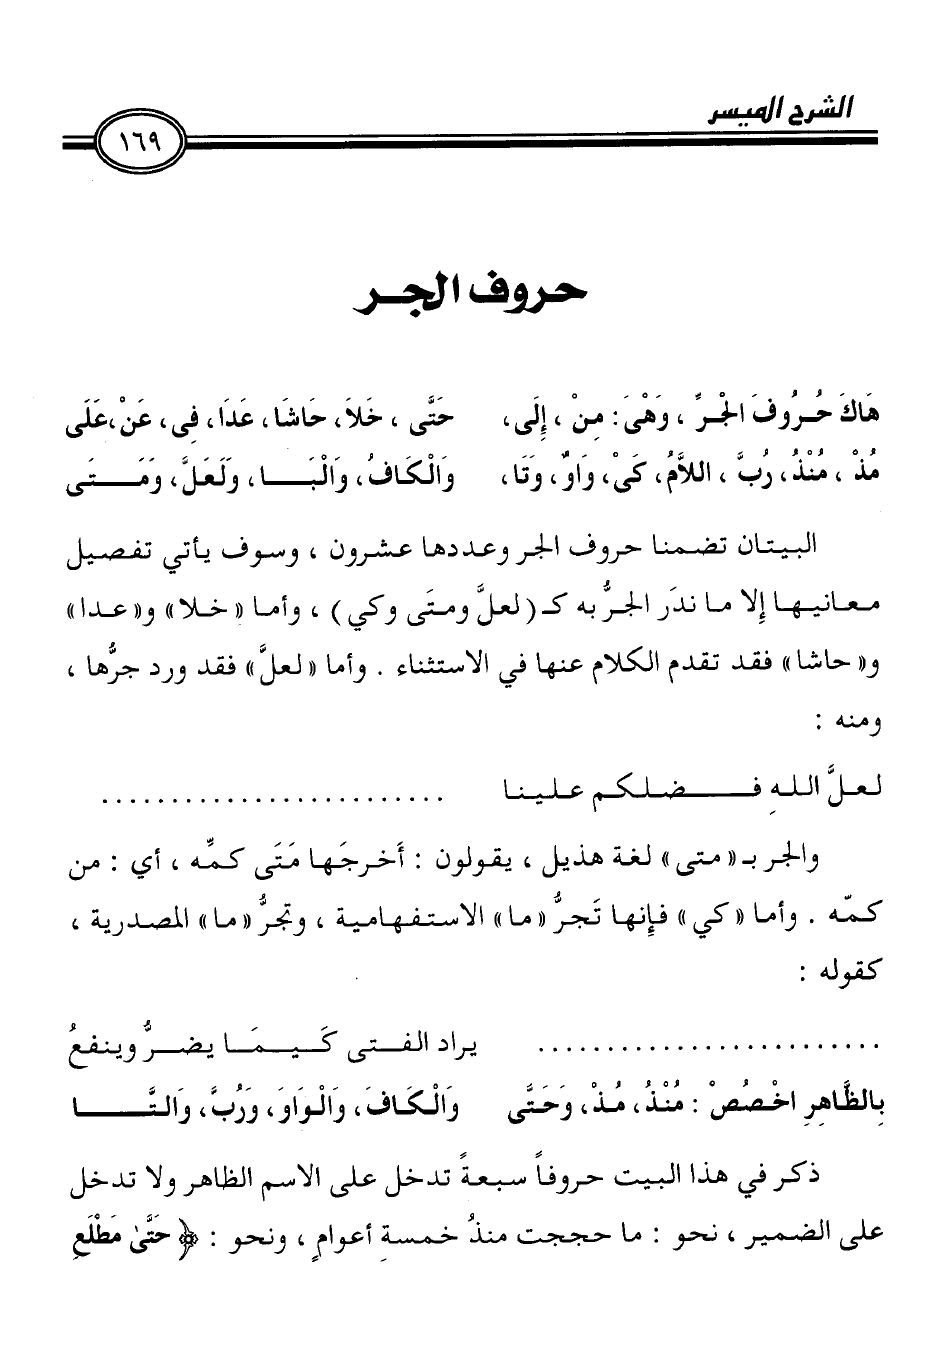 الشرح الميسر
١٦٩
حروف الجـر
هَاكَ حُرُوفَ الْجَرِّ ، وَهْيَ : مِنْ ، إِلَى ، حَتَّى ، خَلاَ ، حَاشَا ، عَدَا ، فِى ، عَنْ ، عَلَى
مُذْ ، مُنْذُ ، رُبَّ ، اللاَّمُ ، كَىْ ، وَاوٌ ، وَتَا ، وَالْكَافُ ، وَالْبَـا ، وَلَعَلَّ ، وَمَـتَى
البيتان تضمنا حروف الجر وعددها عشرون ، وسوف يأتي تفصيل
معانيها إلا ما ندَر الجرُّ به كـ ( لعلَّ ومتَى وكي ) ، وأما « خلا » و« عدا »
و« حاشا » فقد تقدم الكلام عنها في الاستثناء . وأما « لعلَّ » فقد ورد جرُّها ،
ومنه :
لعلَّ اللهِ فـضلكم علينا ........................
والجر بـ « متى » لغة هذيل ، يقولون : أَخرجَها مَتَى كمِّه ، أي : من
كمّه . وأما « كي » فإنها تَجرُّ « ما » الاستفهامية ، وتجرُّ « ما » المصدرية ،
كقوله :
........................ يراد الفـتى كَـيـمَـا يضـرُّ وينفعُ
بِالظَّاهِرِ اخْصُصْ : مُنْذُ ، مُذْ ، وَحَتَّى وَالْكَافَ ، وَالْوَاوَ ، وَرُبَّ ، وَالتَّـا
ذكر في هذا البيت حروفاً سبعةً تدخل على الاسم الظاهر ولا تدخل
على الضمير ، نحو : ما حججت منذُ خمسةِ أعوامٍ ، ونحو : ﴿ حَتَّىٰ مَطْلَعِ